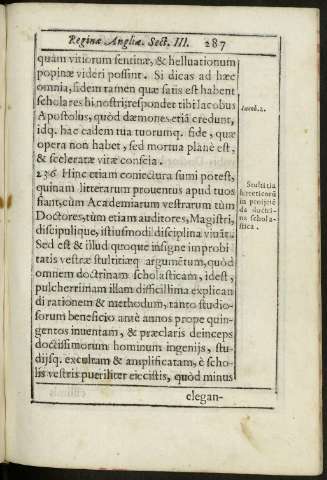 Reginæ Angliæ. Sect. III. 287
quàm vitiorum sentinæ, & helluationum
popinæ videri possint. Si dicas ad hæc
omnia, fidem tamen quæ satis est habent
scholares hi nostri respondet tibi Iacobus
Iacob. 2.
Apostolus, quòd dæmones etiã credunt,
idq. hac eadem tua tuorumq. fide, quæ
opera non habet, sed mortua planè est,
& sceleratæ vitæ conscia.
236 Hinc etiam coniectura sumi potest,
quinam litterarum prouentus apud tuos
fiant, cùm Academiarum vestrarum tùm
Doctores, tùm etiam auditores, Magistri,
discipulique, istiusmodi disciplina viuãt.
Sed est & illud quoque insigne improbi
tatis vestræ stultitiæq. argumẽtum, quòd
omnem doctrinam scholasticam, idest,
pulcherrimam illam difficillima explican
di rationem & methodum, tanto studio-
sorum beneficio antè annos prope quin-
gentos inuentam, & præclaris deinceps
doctissimorum hominum ingenijs, stu-
dijsq. excultam & amplificatam, è scho-
lis vestris pueriliter eiecistis, quòd minus
Stultitia
hæreticorũ
in proijciẽ
da doctri-
na schola-
stica.
elegan-